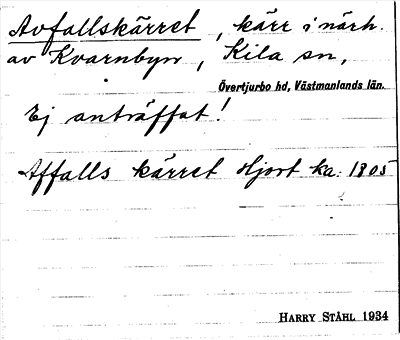 Avfallskärret, kärr i närh.
av Kvarnbyn, Kila sn,
Övertjurbo hd, Västmanlands län.
Ej anträffat!
Affalls kärret Hjort ka. 1805
HARRY STÅHL 1934